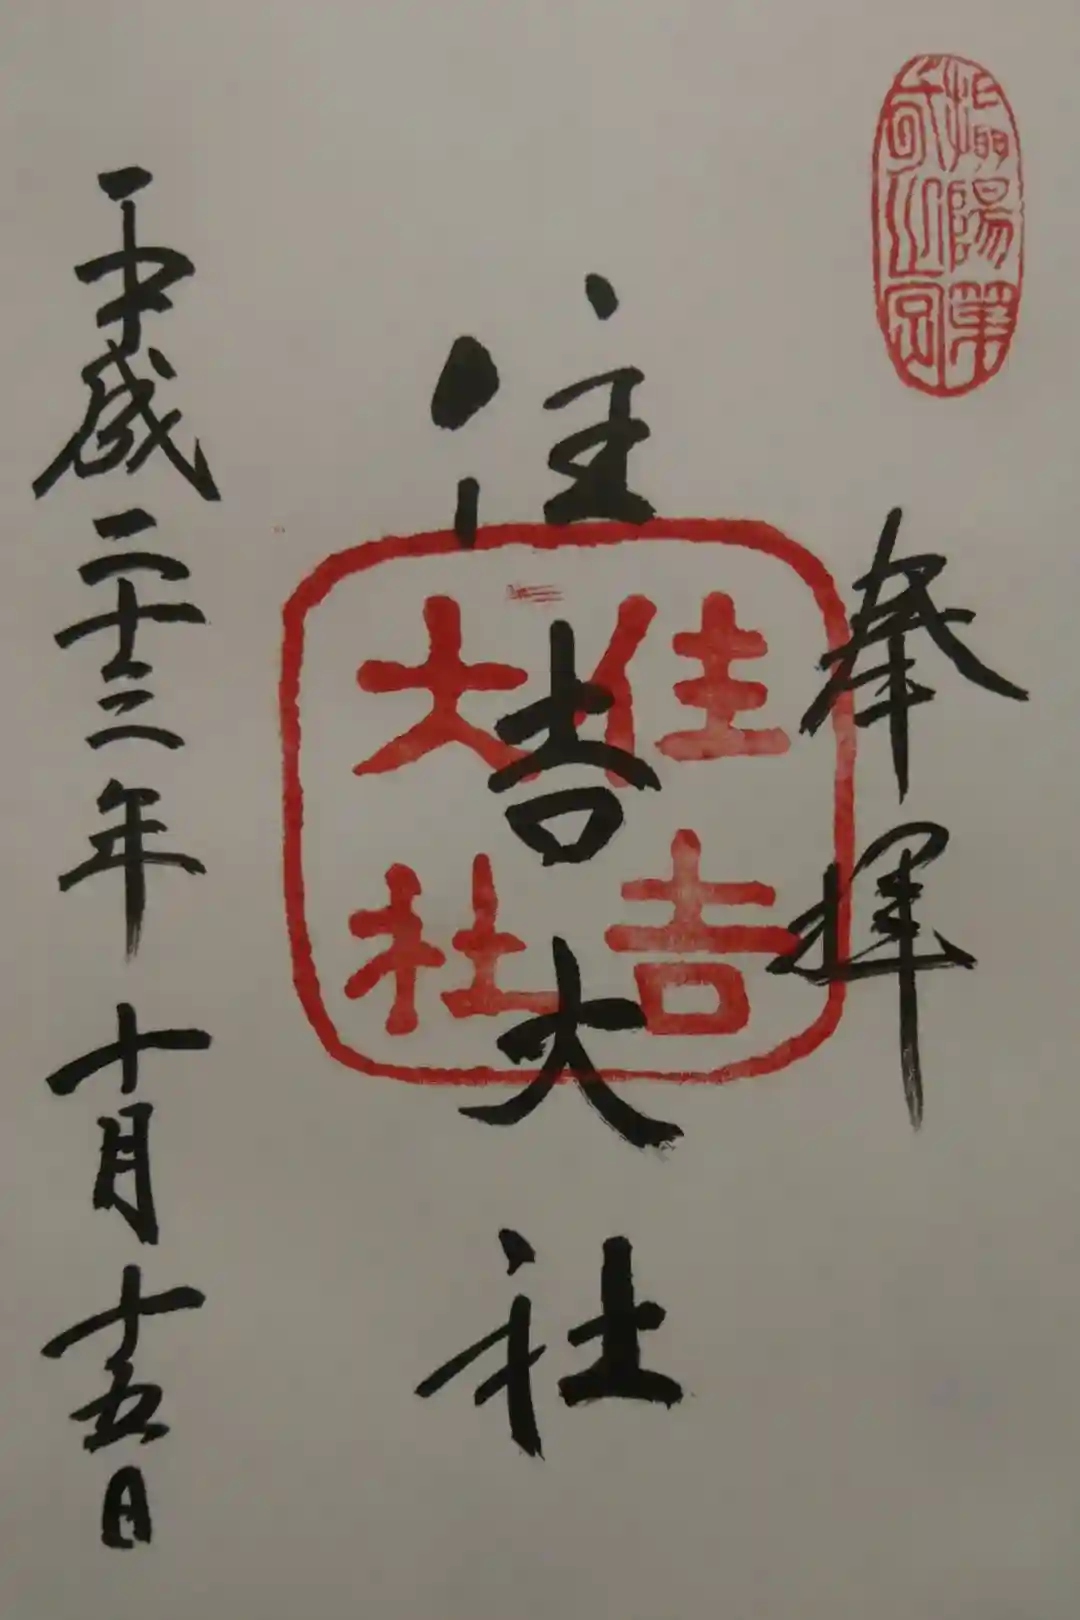 攝陽第
之宮
奉拝
住吉大社
住吉
大社
平成二十三年十月十五日